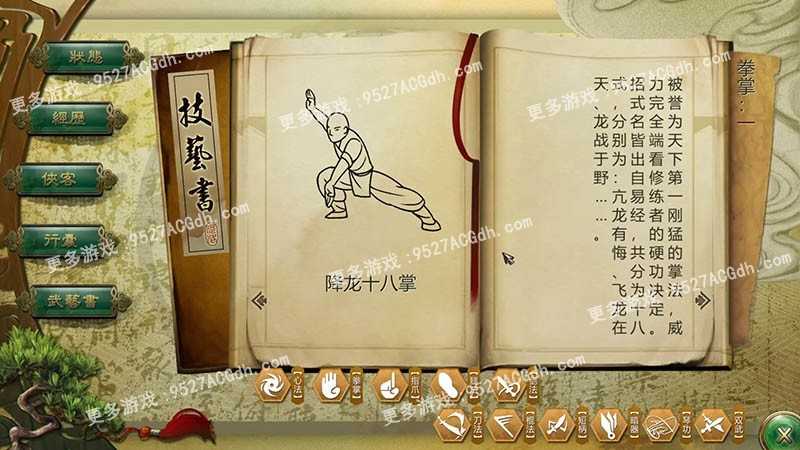 狀態
經歷
俠客
行囊
武藝書
技藝書
降龙十八掌
拳掌:一
被誉为天下第一刚猛的掌法,威
力完全端看修练者的硬功决定。
招式名皆出自易经,共分为十八
式,分别为:亢龙有悔、飞龙在
天、龙战于野……。
心法
拳掌
指爪
刀法
棍法
短柄
暗器
双武
更多游戏:9527ACGdh.com
更多游戏:9527ACGdh.com
更多游戏:9527ACGdh.com
更多游戏:9527ACGdh.com
更多游戏:9527ACGdh.com
更多游戏:9527ACGdh.com
更多游戏:9527ACGdh.com
更多游戏:9527ACGdh.com
更多游戏:9527ACGdh.com